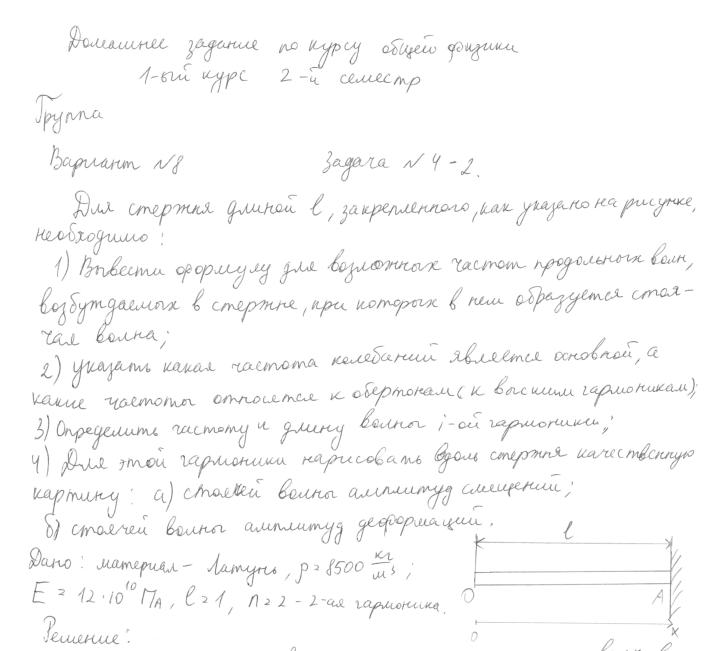 Домашнее задание по курсу общей физики
1-ый курс 2-й семестр
Группа
Вариант №8 Задача №4-2.
Для стержня длиной l, закрепленного, как указано на рисунке,
необходимо:
1) Вывести формулу для возможных частот продольных волн,
возбуждаемых в стержне, при которых в нем образуется стоя-
чая волна;
2) указать какая частота колебаний является основной, а
какие частоты относятся к обертонам (к высшим гармоникам);
3) Определить частоту и длину волны i-ой гармоники;
4) Для этой гармоники нарисовать вдоль стержня качественную
картину: а) стоячей волны амплитуд смещений;
б) стоячей волны амплитуд деформаций.
Дано: материал - Латунь, ρ = 8500 кг/м³;
E = 12·10¹⁰ Па, l = 1, n = 2 - 2-ая гармоника.
l
O A
0 x
Решение: